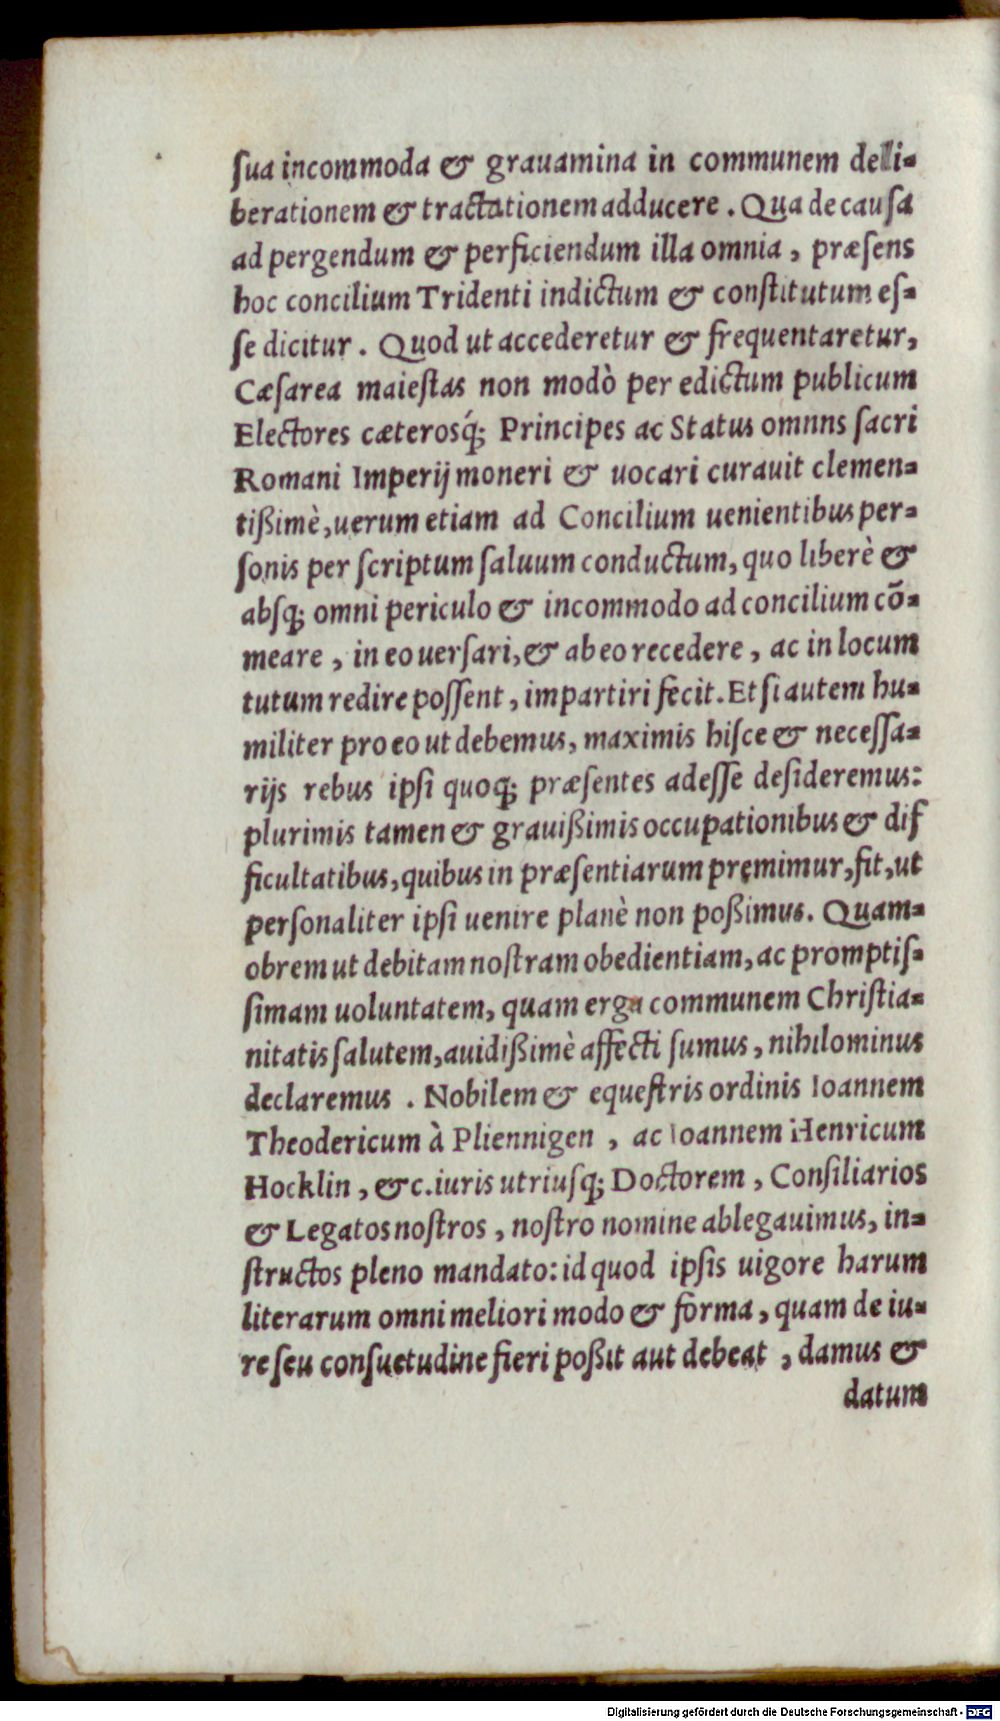 ſua incommoda & grauamina in communem deli-
berationem & tractationem adducere. Qua de cauſa
ad pergendum & perficiendum illa omnia, præſens
hoc concilium Tridenti indictum & conſtitutum eſ-
ſe dicitur. Quod ut accederetur & frequentaretur,
Cæſarea maieſtas non modò per edictum publicum
Electores cæterosq́; Principes ac Status omnns ſacri
Romani Imperij moneri & uocari curauit clemen-
tißimè, uerum etiam ad Concilium uenientibus per-
ſonis per ſcriptum ſaluum conductum, quo liberè &
abſq; omni periculo & incommodo ad concilium cō-
meare, in eo uerſari, & ab eo recedere, ac in locum
tutum redire poſſent, impartiri fecit. Et ſi autem hu-
militer pro eo ut debemus, maximis hiſce & neceſſa-
rijs rebus ipſi quoq; præſentes adeſſe deſideremus:
plurimis tamen & grauißimis occupationibus & dif
ficultatibus, quibus in præſentiarum pręmimur, fit, ut
perſonaliter ipſi uenire planè non poßimus. Quam-
obrem ut debitam noſtram obedientiam, ac promptiſ-
ſimam uoluntatem, quam erga communem Chriſtia-
nitatis ſalutem, auidißimè affecti ſumus, nihilominus
declaremus. Nobilem & equeſtris ordinis Ioannem
Theodericum à Pliennigen, ac Ioannem Henricum
Hocklin, &c. iuris utriuſq; Doctorem, Conſiliarios
& Legatos noſtros, noſtro nomine ablegauimus, in-
ſtructos pleno mandato: id quod ipſis uigore harum
literarum omni meliori modo & forma, quam de iu-
re ſeu conſuetudine fieri poßit aut debeat, damus &
datum
Digitalisierung gefördert durch die Deutsche Forschungsgemeinschaft - DFG